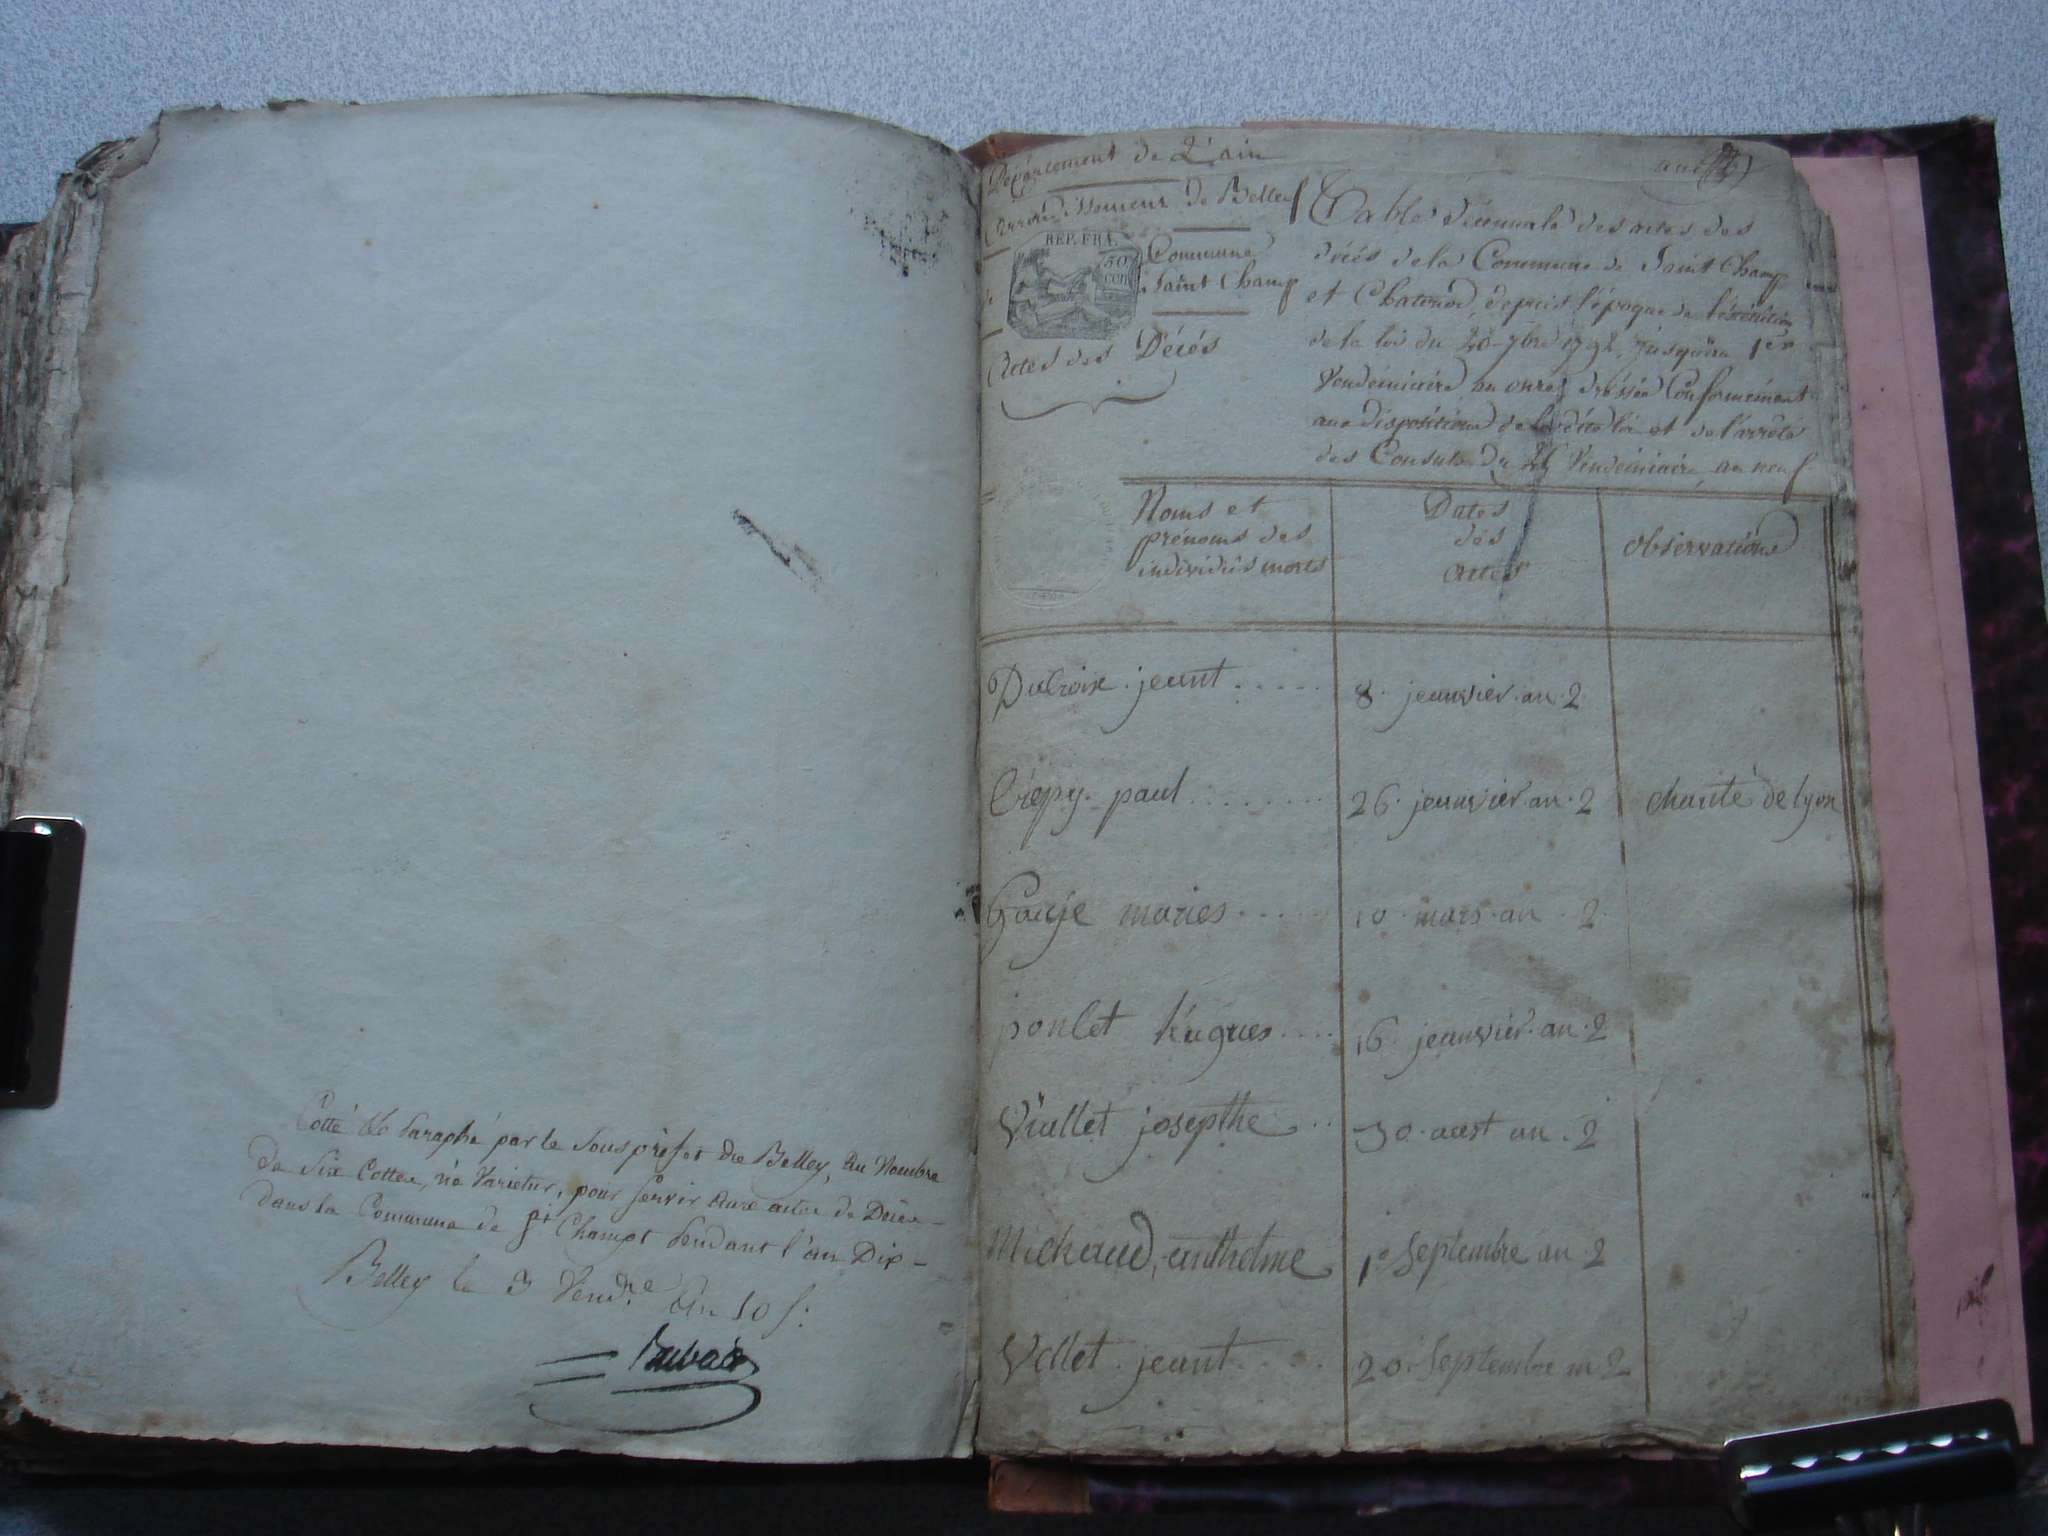 Cotté & Paraphé par le Sous préfet de Belley, Au Nombre
de Six Cottes, né Varietur, pour servir aux actes de Décès
dans la Commune de St Champt Pendant l'an Dix
Belley le 3 Vend.re An 10 f.
Département de L'ain
Arrondissement de Belley
REP. FRA.
50
CEN
Commune
Saint Champ
Actes des Décés
Table décennale des actes des
décés de la Commune de Saint Champ
et Chatonod, depuis l'époque de l'exécution
de la loi du 20 7bre 1792, Jusqu'au 1er
Vendémiaire an onze, dréssée Conformément
aux dispositions de la dite loi et de l'arrêté
des Consuls du 25 Vendémiaire an neuf
Noms et
prénoms des
individus morts
Dates
dés
actes
observations
Ducroix jeant ..... 8 jeanvier an 2
Crépy paul ........ 26 jeanvier an 2 charité de lyon
Gouje maries ..... 10 mars an 2
ponlet hugues .... 16 jeanvier an 2
Viallet josepthe .. 30 aust an 2
Michaud anthelme 1 septembre an 2
Vellet jeant .... 20 septembre an 2